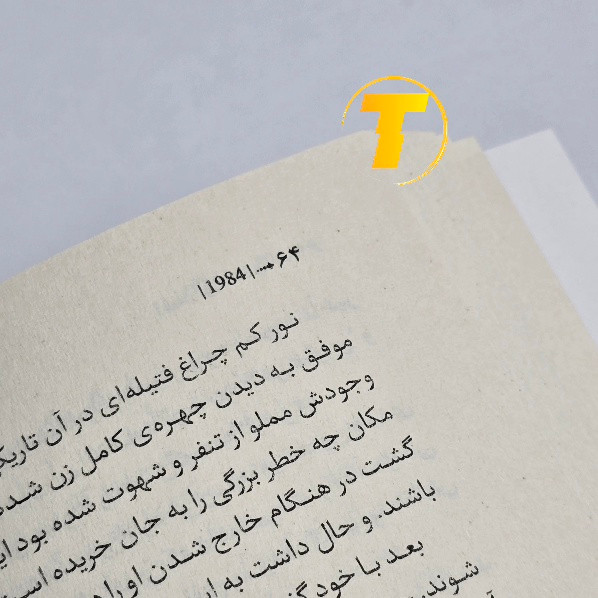 T
۶۴ → |1984|
نور کم چراغ فتیله‌ای در آن
موفق به دیدن چهره‌ی کامل زن شده
وجودش مملو از تنفر و شهوت شده بود
مکان چه خطر بزرگی را به جان خریده است
گشت در هنگام خارج شدن او را
باشند. و حال داشت به
بعد با خود
شوند.